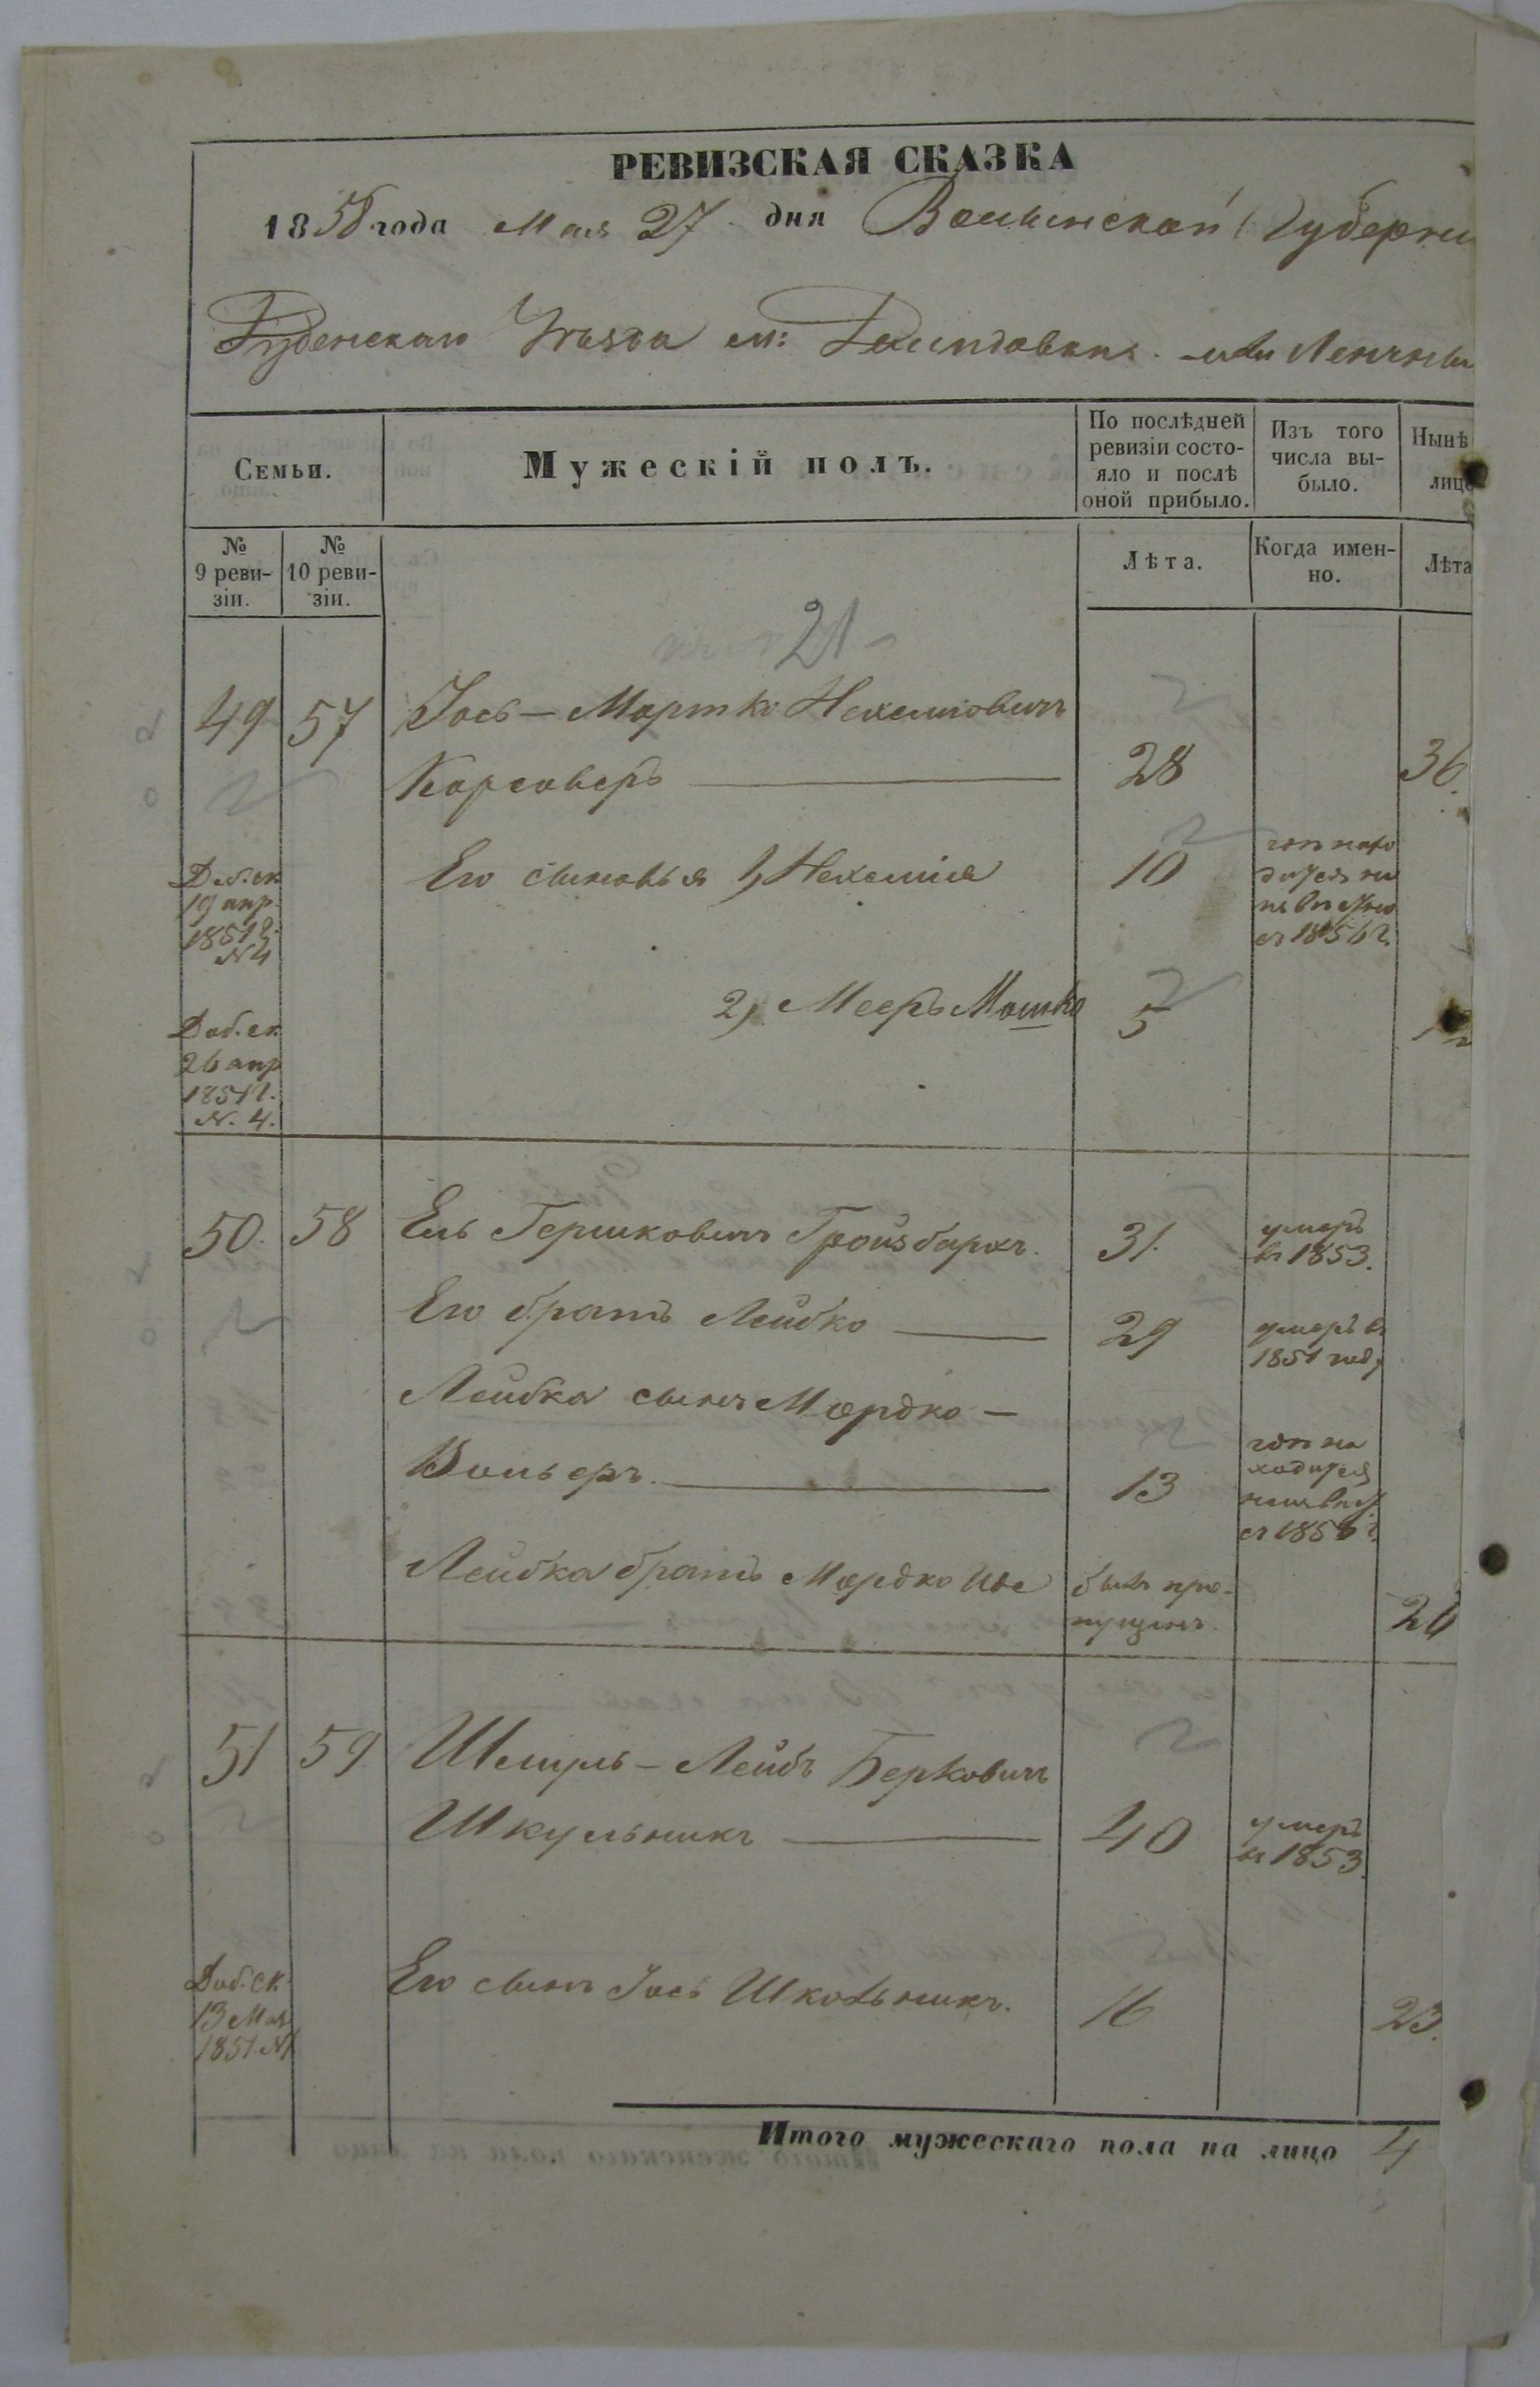 РЕВИЗСКАЯ СКАЗКА
1858 года Мая 27 дня Волынской Губерни
Уезда м: или
Семьи.
Мужескій полъ.
По послѣдней ревизіи состо-
яло и послѣ
оной прибыло.
Изъ того
числа вы-
было.
Нынѣ
лицо
№
9 реви-
зіи.
№
10 реви-
зіи.
Лѣта.
Когда имен-
но.
Лѣта
21
49 57 Іось-Мортко Нехемовичъ
Корсоверъ 28 36.
Доб. ск.
19 апр.
1851 г.
N 4
Его сыновья 1, Нехемия 10
с 1856 г.
2, Мееръ Мошко 5
Доб. ск.
26 апр
1851 г.
N. 4.
50. 58 Ель Гершковичъ Гройзбархъ. 31. умеръ
въ 1853.
Его братъ Лейбко 29 умеръ въ
1851 году
Лейбка сынъ Мордко-
Вольеръ. 13
Лейбка братъ Мордко был про-
пущенъ. 26
51 59 Шмуль-Лейбъ Берковичъ
Шкульникъ 40 умеръ
въ 1853.
Доб. ск.
13 Мая
1851 N
Его сынъ Іось Школьникъ. 16 23.
Итого мужескаго пола на лицо 4